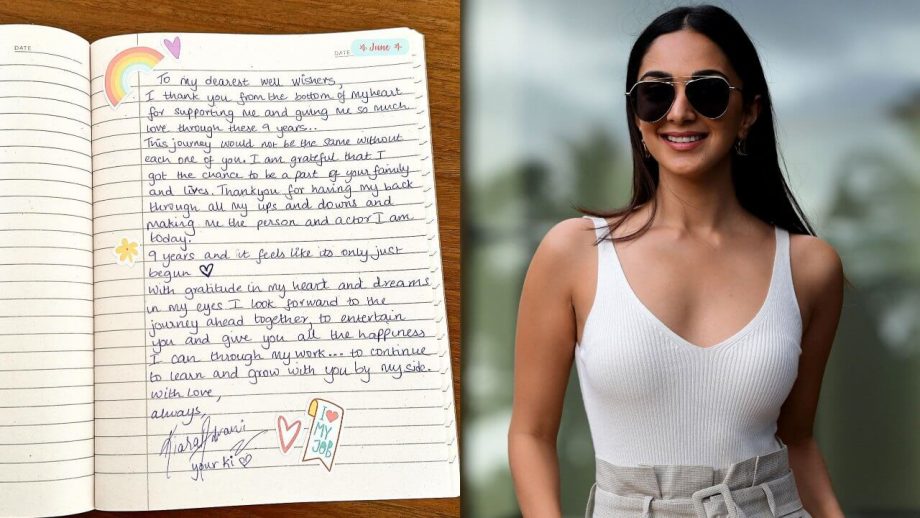 DATE
DATE
June
To my dearest well wishers,
I thank you from the bottom of my heart
for supporting me and giving me so much
love through these 9 years..
This journey would not be the same without
each one of you. I am grateful that I
got the chance to be a part of your family
and lives. Thankyou for having my back
through all my ups and downs and
making me the person and actor I am
today.
9 years and it feels like its only just
begun
With gratitude in my heart and dreams
in my eyes I look forward to the
journey ahead together, to entertain
you and give you all the happiness
I can through my work... to continue
to learn and grow with you by my side.
With love,
always,
Kiara Advani
your Ki
I
MY
JOB